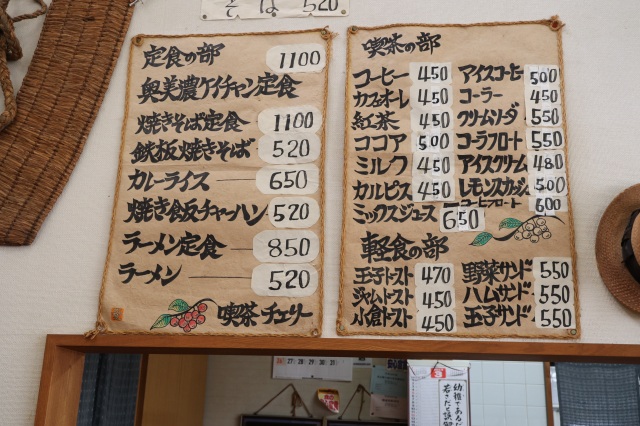 そば 520
定食の部 1100
奥美濃ケイチャン定食
焼きそば定食 1100
鉄板焼きそば 520
カレーライス 650
焼き飯チャーハン 520
ラーメン定食 850
ラーメン 520
喫茶チェリー
喫茶の部
コーヒー 450
カフェオーレ 450
紅茶 450
ココア 500
ミルク 450
カルピス 450
ミックスジュース 650
アイスコーヒー 500
コーラー 450
クリームソーダ 550
コーラフロート 550
アイスクリーム 480
レモンスカッシュ 500
コーヒーフロート 600
軽食の部
玉子トースト 470
ジャムトースト 450
小倉トースト 450
野菜サンド 550
ハムサンド 550
玉子サンド 550
26 27 28 29 30 31